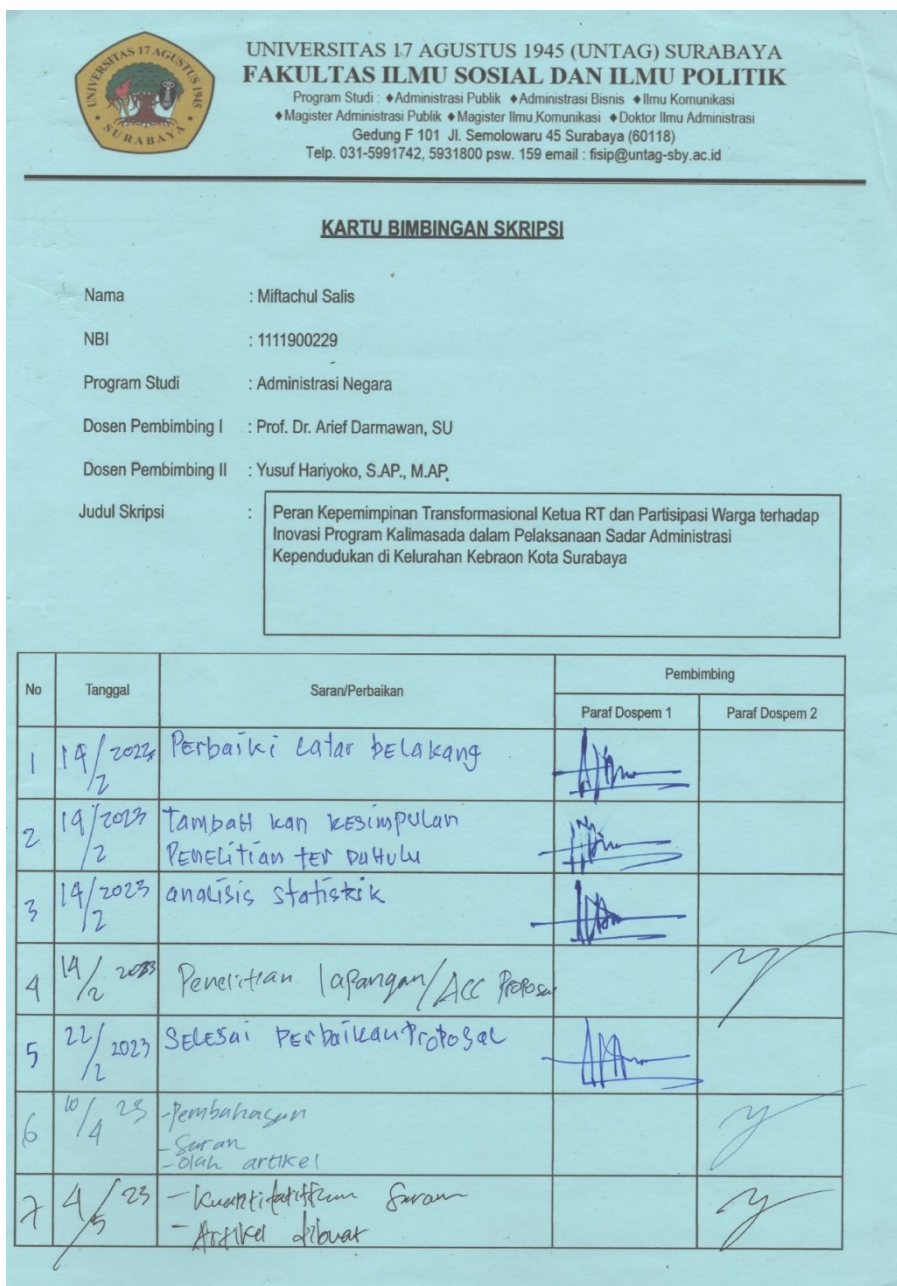 UNIVERSITAS 17 AGUSTUS 1945
SURABAYA
UNIVERSITAS 17 AGUSTUS 1945 (UNTAG) SURABAYA
FAKULTAS ILMU SOSIAL DAN ILMU POLITIK
Program Studi : ♦Administrasi Publik ♦Administrasi Bisnis ♦Ilmu Komunikasi
♦Magister Administrasi Publik ♦Magister Ilmu Komunikasi ♦Doktor Ilmu Administrasi
Gedung F 101 Jl. Semolowaru 45 Surabaya (60118)
Telp. 031-5991742, 5931800 psw. 159 email : fisip@untag-sby.ac.id
KARTU BIMBINGAN SKRIPSI
Nama : Miftachul Salis
NBI : 1111900229
Program Studi : Administrasi Negara
Dosen Pembimbing I : Prof. Dr. Arief Darmawan, SU
Dosen Pembimbing II : Yusuf Hariyoko, S.AP., M.AP.
Judul Skripsi : Peran Kepemimpinan Transformasional Ketua RT dan Partisipasi Warga terhadap
Inovasi Program Kalimasada dalam Pelaksanaan Sadar Administrasi
Kependudukan di Kelurahan Kebraon Kota Surabaya
No Tanggal Saran/Perbaikan Pembimbing
Paraf Dospem 1 Paraf Dospem 2
1 14/2 Perbaiki Latar belakang
2 19/2 2023 tambah kan kesimpulan
Penelitian ter Dahulu
3 14/2 2023 analisis statistik
4 14/2 2023 Penelitian lapangan/Acc Proposal
5 22/2 2023 Selesai Perbaikan Proposal
6 10/4 23 -Pembahasan
-Saran
-olah artikel
7 4/5 23 - Saran
- Artikel dibuat